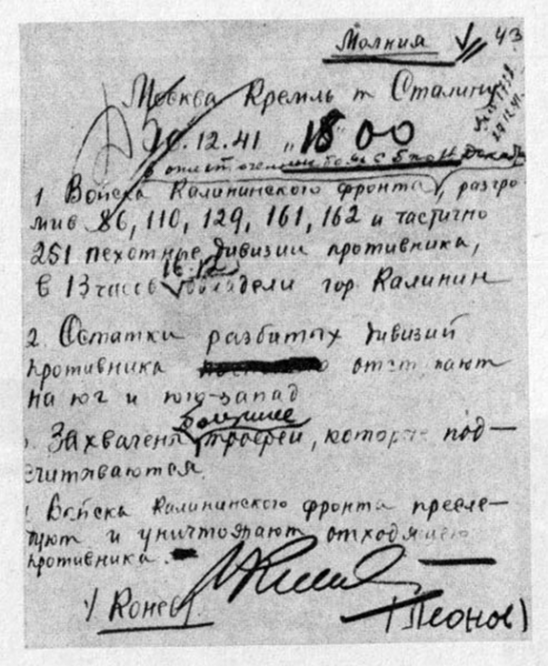 Молния 43
Москва Кремль т Сталину
16.12.41 "18" 00
в ожесточенных боях с
1 Войска Калининского фронта, разгро
мив 86, 110, 129, 161, 162 и частично
251 пехотные дивизии противника,
16.12
в 13 часов овладели гор Калинин
2. Остатки разбитых дивизий
противника отступают
на юг и юго-запад
большие
Захвачены трофеи, которые под—
считываются.
Войска Калининского фронта пресле—
дуют и уничтожают отходящего
противника.
Конев
(Леонов)